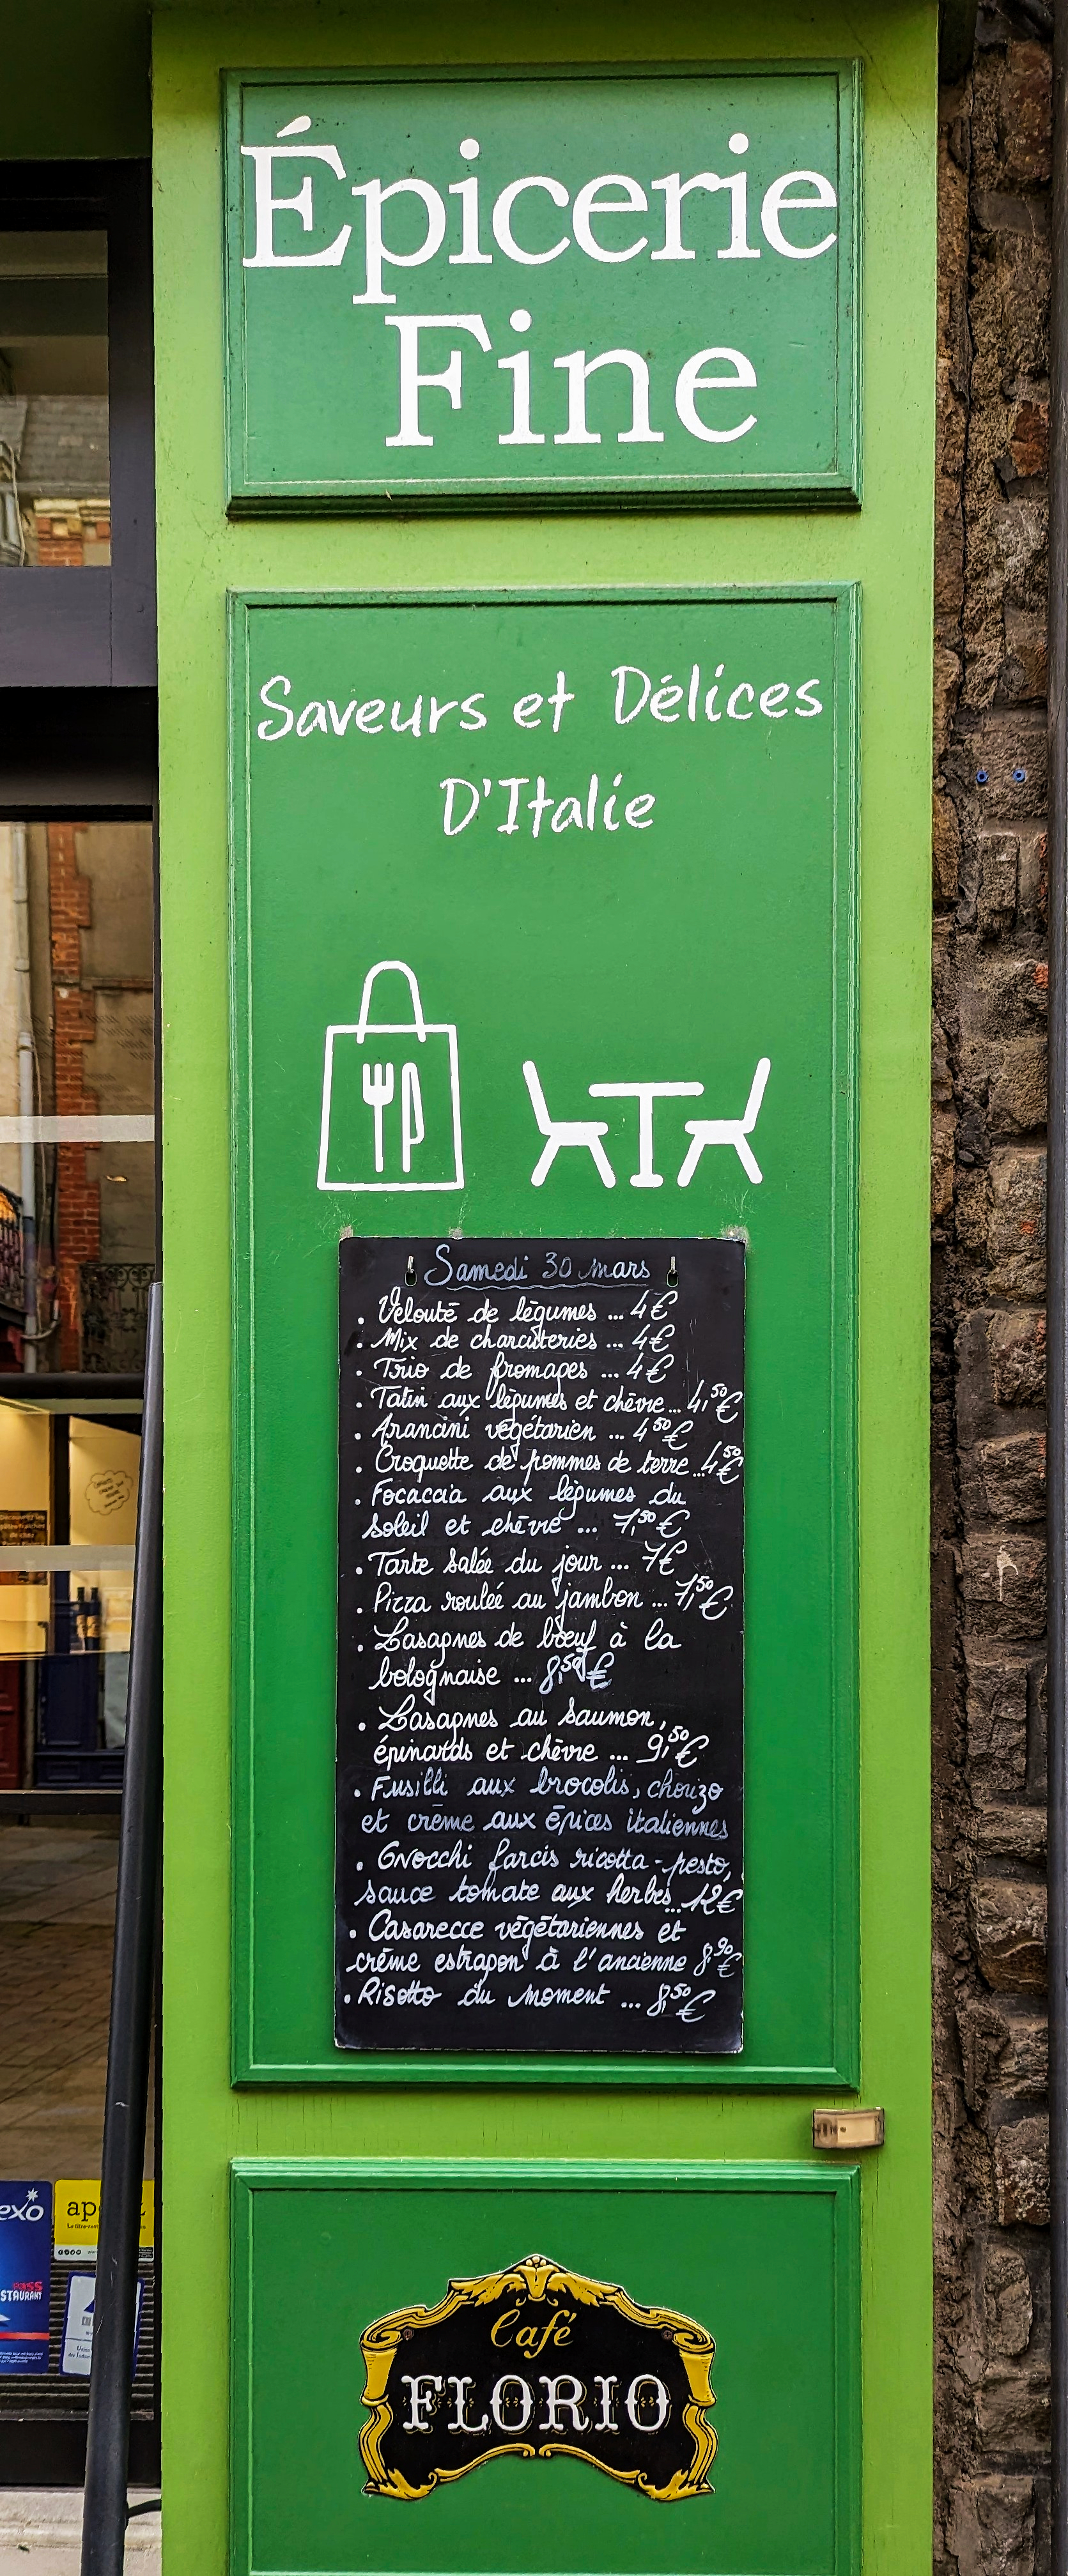 Épicerie
Fine
Saveurs et Délices
D'Italie
Samedi 30 mars
. Velouté de légumes ... 4€
. Mix de charcuteries ... 4€
. Trio de fromages ... 4€
. Tatin aux légumes et chèvre... 4,50€
. Arancini végétarien ... 4,50€
. Croquette de pommes de terre...4,50€
. Focaccia aux légumes du
soleil et chèvre ... 7,50€
. Tarte salée du jour ... 7€
. Pizza roulée au jambon ... 7,50€
. Lasagnes de bœuf à la
bolognaise ... 8,50€
. Lasagnes au saumon,
épinards et chèvre ... 9,50€
. Fusilli aux brocolis, chorizo
et crème aux épices italiennes
. Gnocchi farcis ricotta-pesto,
sauce tomate aux herbes...12€
. Casarecce végétariennes et
crème estragon à l'ancienne 8,90€
. Risotto du moment ... 8,50€
Café
FLORIO